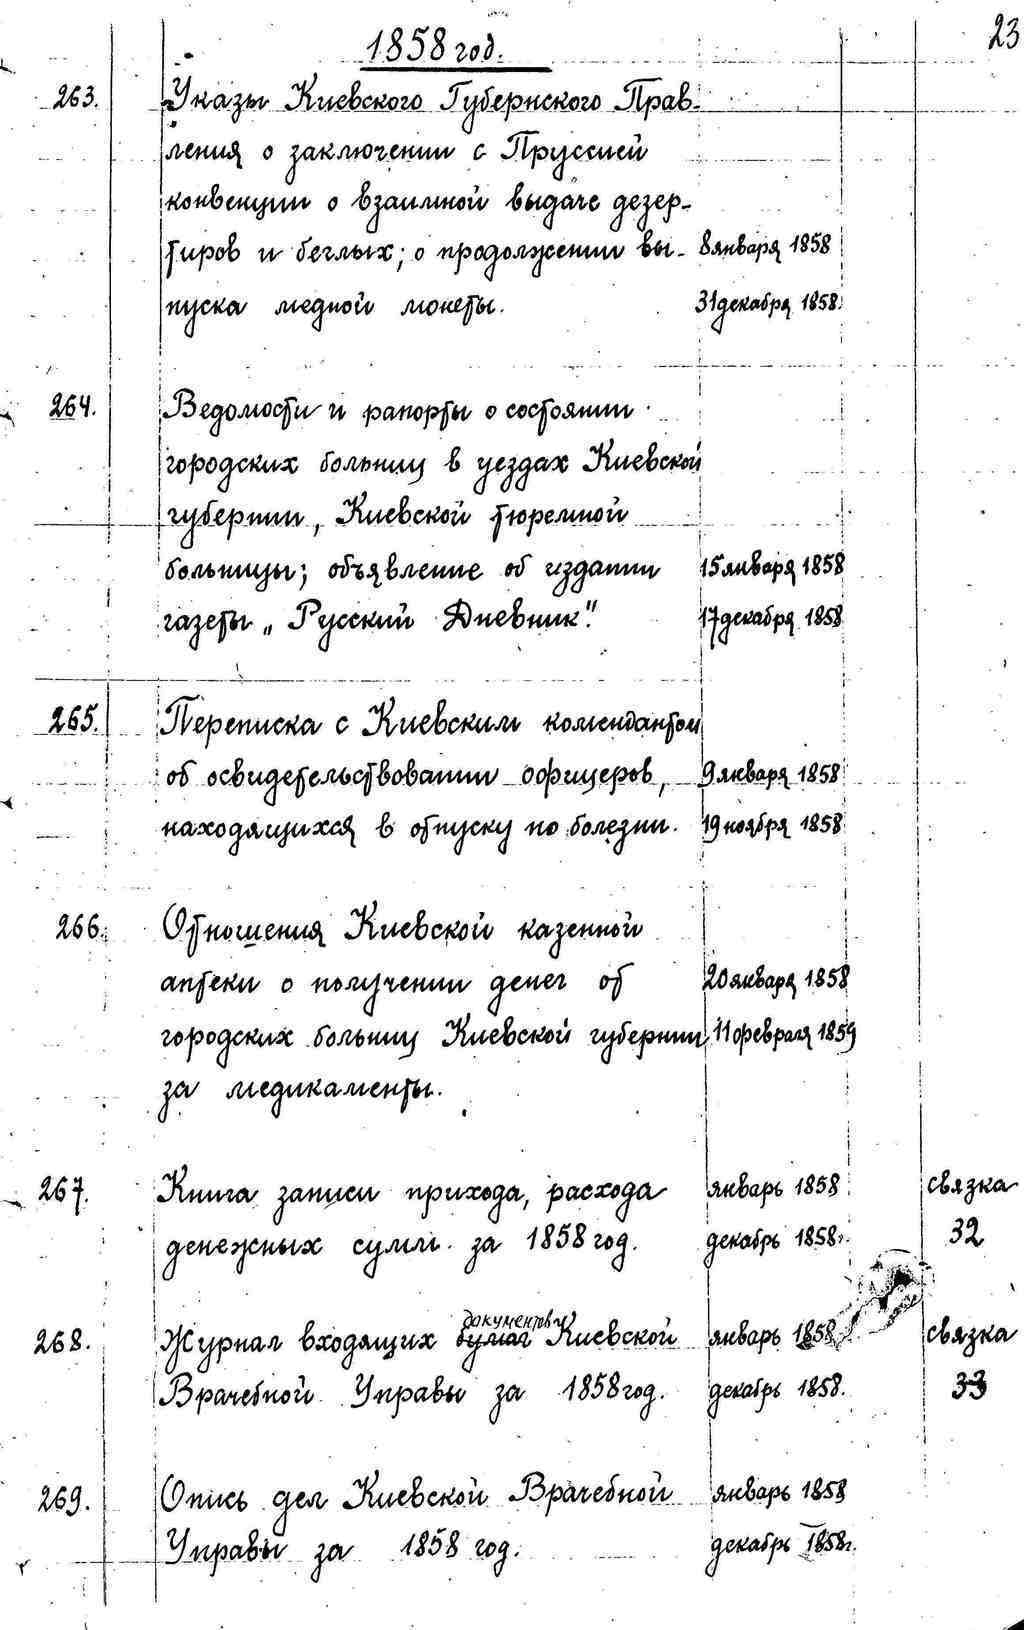 23
1858 год.
263. Указы Киевского Губернского Прав-
ления о заключении с Пруссией
конвенции о взаимной выдаче дезер-
тиров и беглых; о продолжении вы- 8 января 1858
пуска медной монеты. 31 декабря 1858.
264. Ведомости и рапорты о состоянии
городских больниц в уездах Киевской
губернии, Киевской тюремной
больницы; объявление об издании 15 января 1858
газеты „Русский Дневник". 17 декабря 1858
265. Переписка с Киевским комендантом
об освидетельствовании офицеров, 9 января 1858
находящихся в отпуску по болезни. 19 ноября 1858
266. Отношения Киевской казенной
аптеки о получении денег от 20 января 1858
городских больниц Киевской губернии 11 февраля 1859
за медикаменты.
267. Книга записи прихода, расхода январь 1858 связка
денежных сумм за 1858 год. декабрь 1858. 32
документов
268. Журнал входящих бумаг Киевской январь 1858 связка
Врачебной Управы за 1858 год. декабрь 1858. 33
269. Опись дел Киевской Врачебной январь 1858
Управы за 1858 год. декабрь 1858г.